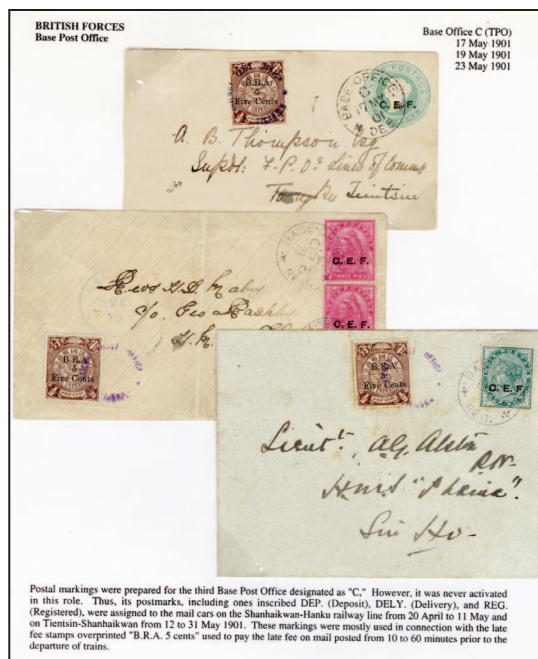 BRITISH FORCES
Base Post Office
Base Office C (TPO)
17 May 1901
19 May 1901
23 May 1901
B.R.A.
5
Five Cents
BASE OFFICE
C.E.F.
A. B. Thompson Esq
Supdt: F. P. Os Lines of Comms
Tongku Tientsin
C. E. F.
C. E. F.
c/o Geo
B.R.A.
5
Five Cents
HALF CENT
B.R.A.
5
Five Cents
HALF CENT
C.E.F.
REG.
Lieutt. A.G.
R.N.
H.M.S
Postal markings were prepared for the third Base Post Office designated as "C," However, it was never activated
in this role. Thus, its postmarks, including ones inscribed DEP. (Deposit), DELY. (Delivery), and REG.
(Registered), were assigned to the mail cars on the Shanhaikwan-Hanku railway line from 20 April to 11 May and
on Tientsin-Shanhaikwan from 12 to 31 May 1901. These markings were mostly used in connection with the late
fee stamps overprinted "B.R.A. 5 cents" used to pay the late fee on mail posted from 10 to 60 minutes prior to the
departure of trains.